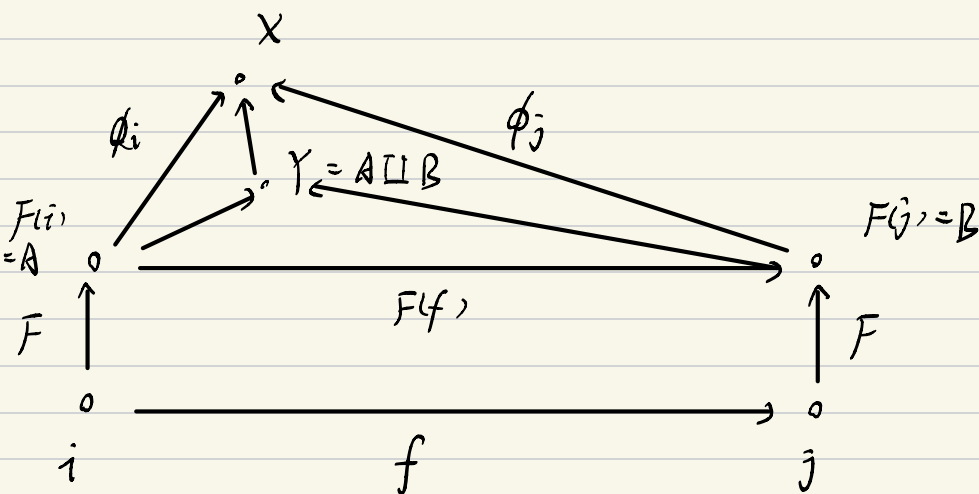 X
ϕi
ϕj
Y = A ∐ B
F(i)
= A
F(j) = B
F(f)
F
F
i
f
j